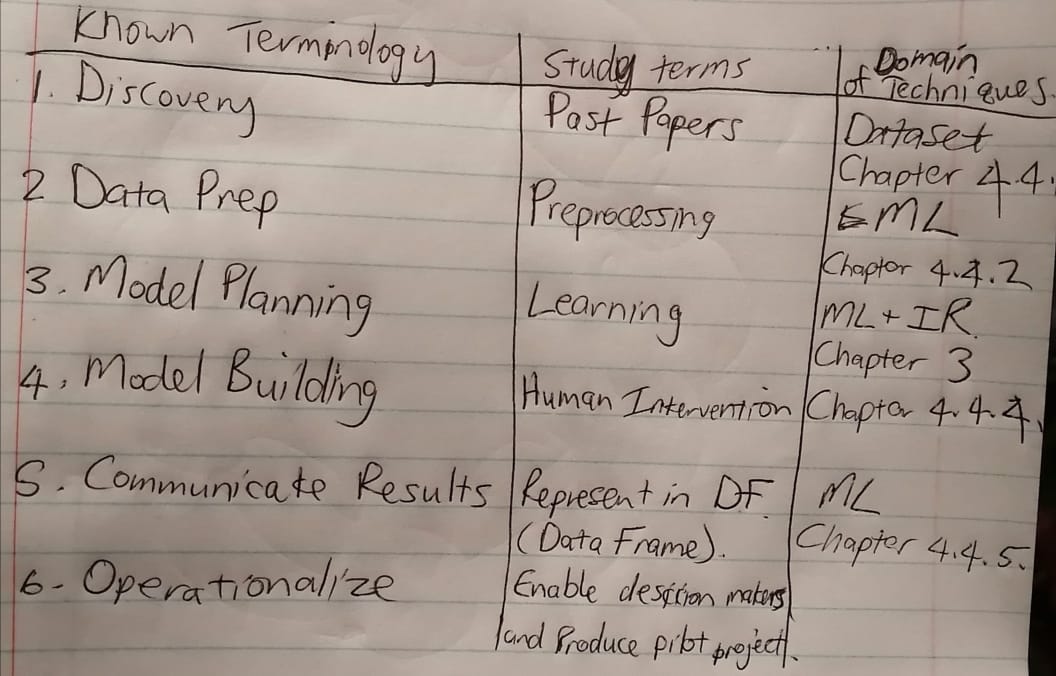 Known Terminology
Study terms
Domain
of Techniques.
1. Discovery
Past Papers
Dataset
Chapter 4.4.
2 Data Prep
Preprocessing
ML
Chapter 4.4.2
3. Model Planning
Learning
ML + IR
Chapter 3
4. Model Building
Human Intervention
Chapter 4.4.4.
5. Communicate Results
Represent in DF.
(Data Frame).
ML
Chapter 4.4.5.
6- Operationalize
Enable makers
and Produce pilot project.